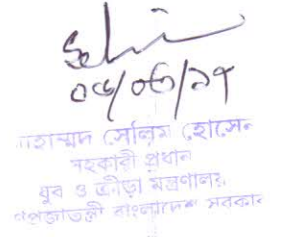 ০৫/০৩/১৭
মোহাম্মদ সেলিম হোসেন
সহকারী প্রধান
যুব ও ক্রীড়া মন্ত্রণালয়
গণপ্রজাতন্ত্রী বাংলাদেশ সরকার